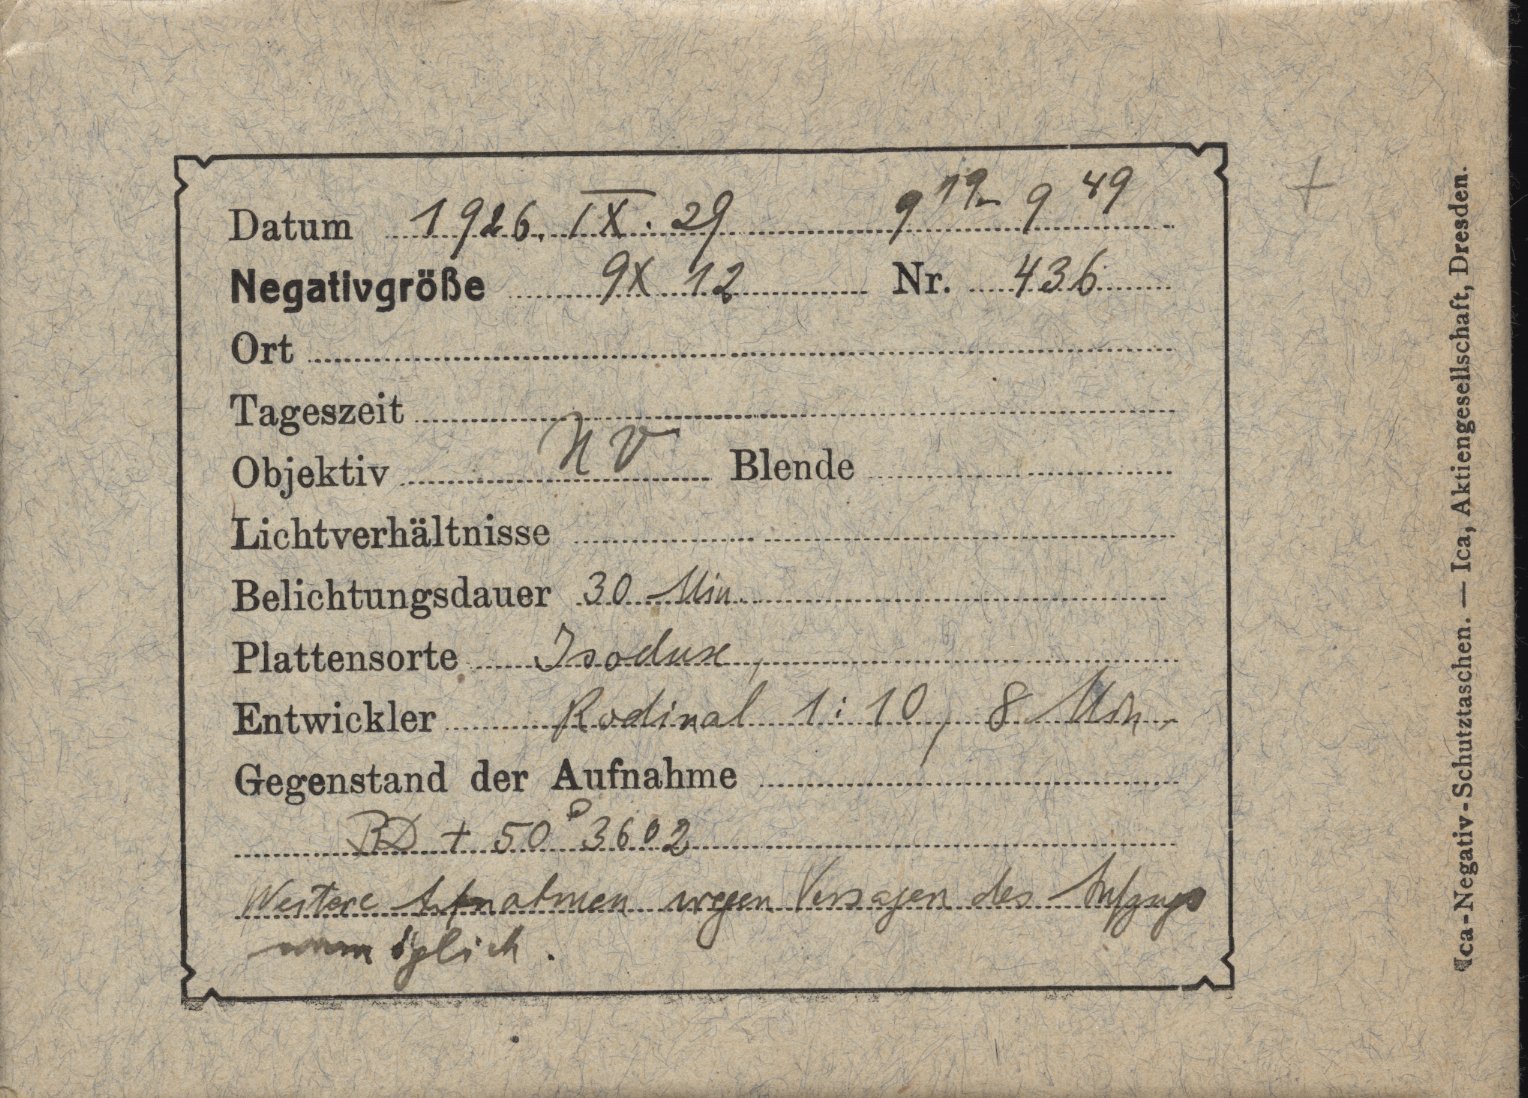 Datum 1926. IX. 29 9 19 - 9 49
Negativgröße 9X 12 Nr. 436
Ort
Tageszeit
Objektiv NV Blende
Lichtverhältnisse
Belichtungsdauer 30 Min
Plattensorte Isoduxe,
Entwickler Rodinal 1:10, 8 Min.
Gegenstand der Aufnahme
BD + 50° 3602
Weitere Aufnahmen wegen Versagen des Aufzugs
unmöglich.
+
Ica-Negativ-Schutztaschen. — Ica, Aktiengesellschaft, Dresden.